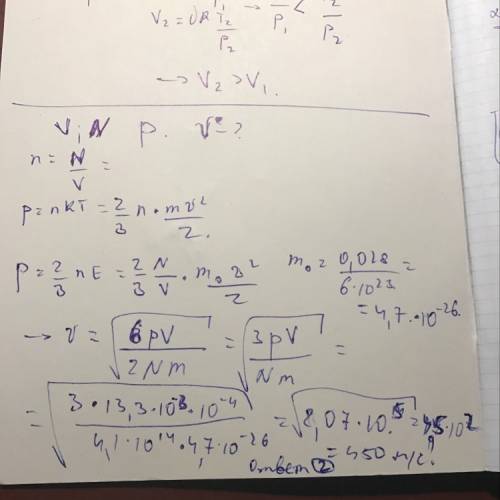 V₂ = νR T₂/P₂ → /P₁ < /P₂
→ V₂ > V₁.
V; N p. v - ?
n = N/V =
p = nkT = 2/3 n · mv²/2.
p = 2/3 nE = 2/3 N/V · m₀ v²/2 m₀ = 0,028/6·10²³ =
= 4,7·10⁻²⁶.
→ v = √(6pV/2Nm) = √(3pV/Nm) =
= √(3·13,3·10⁻³·10⁻⁴/4,1·10¹⁴·4,7·10⁻²⁶) = √2,07·10⁵ = 4,5·10²
= 450 м/с.
ответ 2